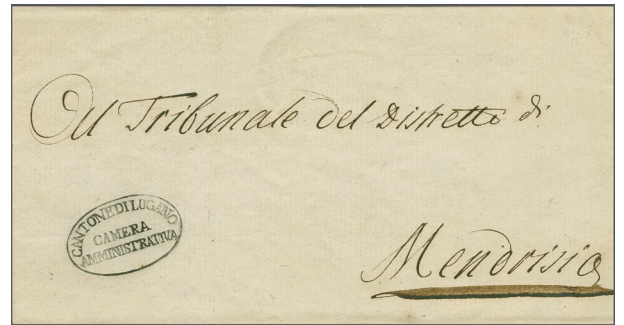 Al Tribunale del Distretto di
CANTONE DI LUGANO
CAMERA
AMMINISTRATIVA
Mendrisio